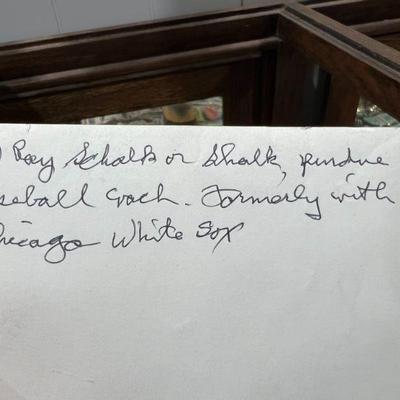 ) Ray Schalk or Shalk, purdue
seball coach. Formerly with
hicago White Sox